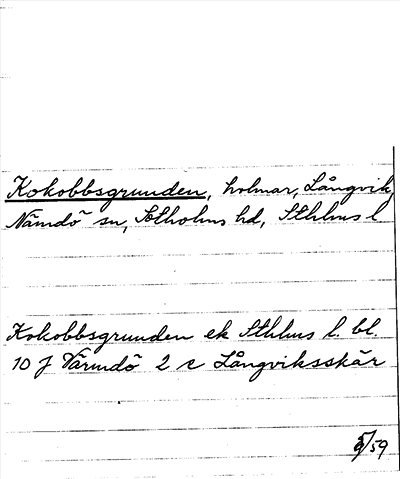 Kokobbsgrunden, holmar, Långvik,
Nämdö sn, Sotholms hd, Sthlms l
Kokobbsgrunden ek Sthlms l. bl.
10 J Värmdö 2 c Långviksskär
5/59